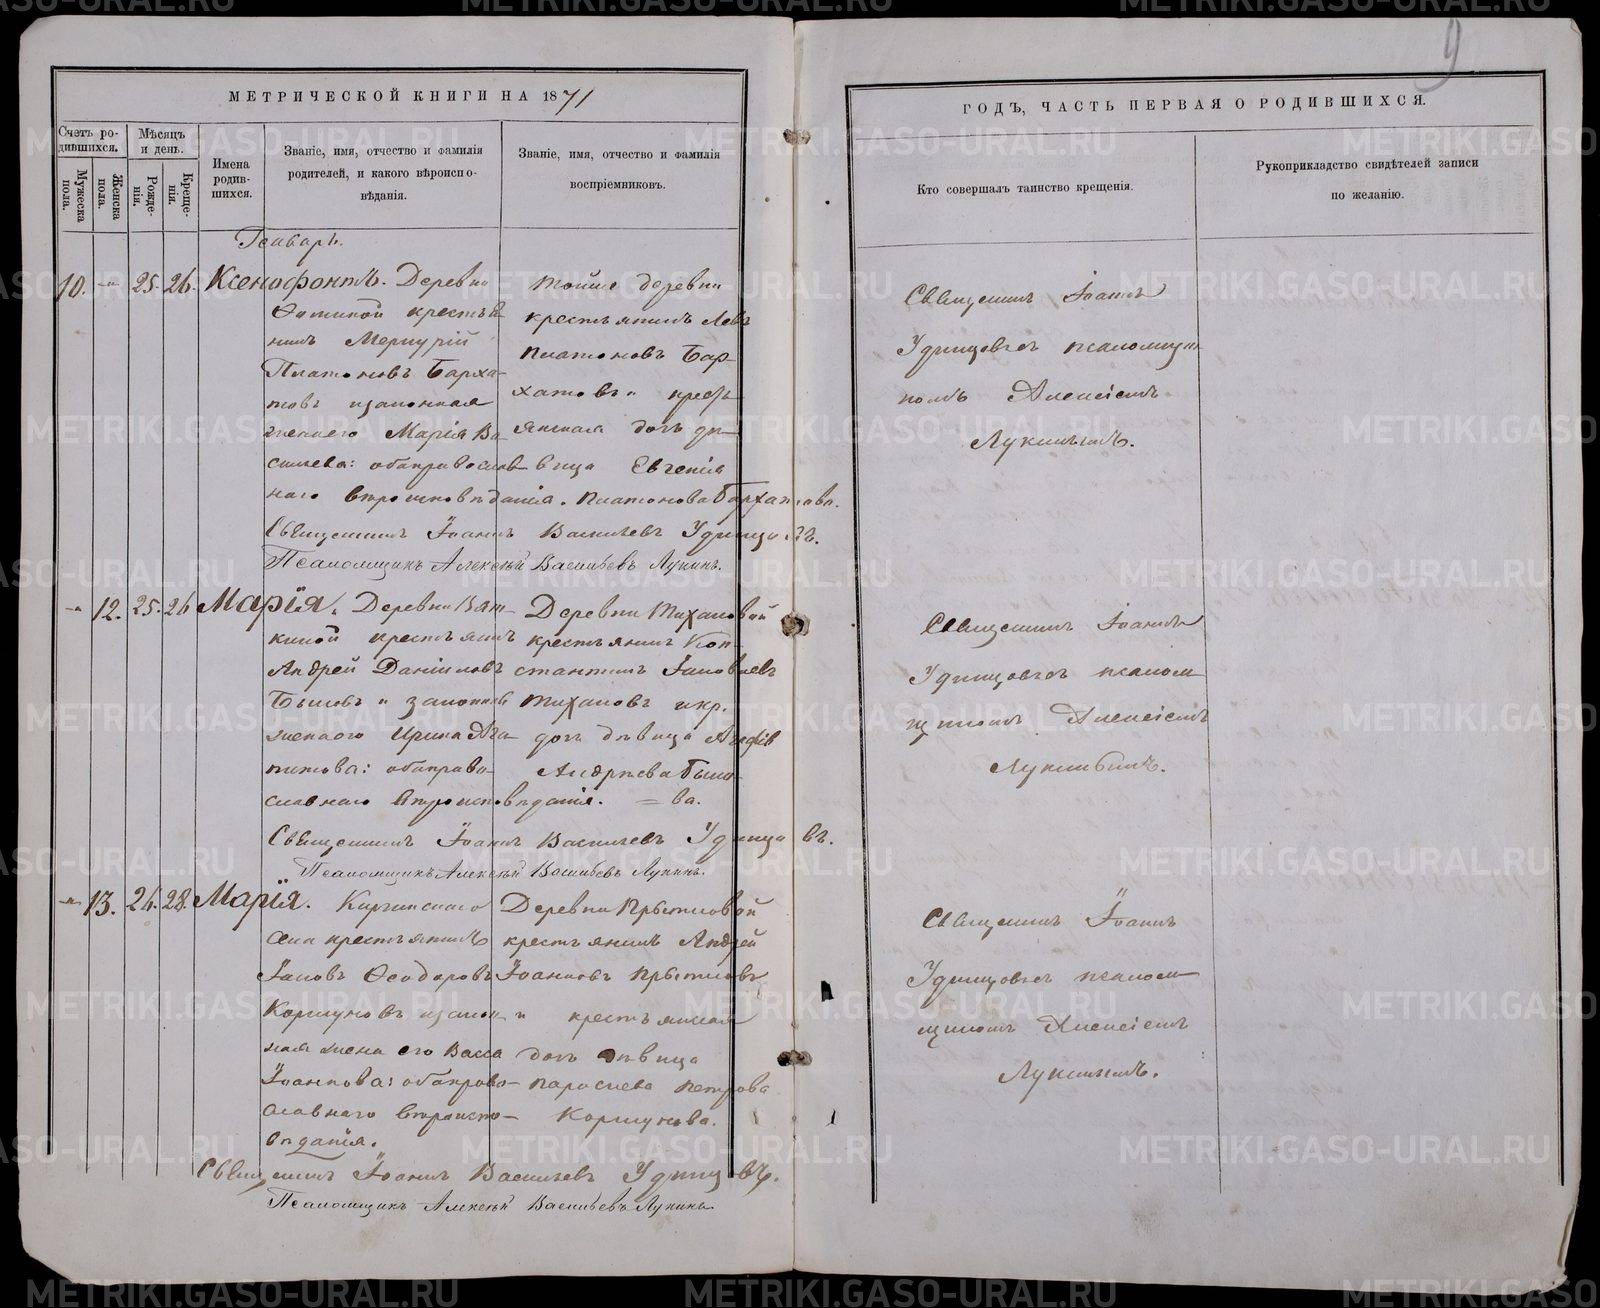 9
МЕТРИЧЕСКОЙ КНИГИ НА 1871
ГОДЪ, ЧАСТЬ ПЕРВАЯ О РОДИВШИХСЯ.
Счетъ ро-
дившихся.
Мужеска
пола.
Женска
пола.
Мѣсяцъ
и день.
Рожде-
нія.
Креще-
нія.
Имена
родив-
шихся.
Званіе, имя, отчество и фамилія
родителей, и какого вѣроиспо-
вѣданія.
Званіе, имя, отчество и фамилія
воспріемниковъ.
Кто совершалъ таинство крещенія.
Рукоприкладство свидѣтелей записи
по желанію.
Генварь.
10. -"- 25. 26. Ксенофонтъ. Деревни
крестья-
нинъ Меркурій
Платоновъ Барха-
товъ и законная
жена его Марія Ва-
сильева: оба православ-
наго вѣроисповѣданія.
Тойже деревни
крестьянинъ Левъ
Платоновъ Бар-
хатовъ и кресть-
янская дочь дѣ-
вица Евгенія
Платонова Бархатова.
Священникъ Іоаннъ Васильевъ Удинцовъ.
Псаломщикъ Алексѣй Васильевъ Лукинъ.
Священникъ Іоаннъ
Удинцовъ съ псаломщи-
комъ Алексіемъ
Лукинымъ.
-"- 12. 25. 26 Марія. Деревни Вят-
киной крестьянинъ
Андрей Даніиловъ
Быковъ и законная
жена его Ирина Ага-
питова: оба право-
славнаго вѣроисповѣданія.
Деревни Тихановой
крестьянинъ Кон-
стантинъ Іаковлевъ
Тихановъ и кр.
дочь дѣвица
Андреева Быко-
=ва.
Священникъ Іоаннъ Васильевъ Удинцовъ.
Псаломщикъ Алексѣй Васильевъ Лукинъ.
Священникъ Іоаннъ
Удинцовъ съ псалом-
щикомъ Алексіемъ
Лукинымъ.
-"- 13. 26. 28. Марія. Киргинскаго
села крестьянинъ
Іаковъ Ѳеодоровъ
Коршуновъ и закон-
ная жена его Васса
Іоаннова: оба право-
славнаго вѣроиспо-
вѣданія.
Деревни Прытковой
крестьянинъ Андрей
Іоанновъ Прытковъ
и крестьянская
дочь дѣвица
Параскева Петрова
Коршунова.
Священникъ Іоаннъ Васильевъ Удинцовъ.
Псаломщикъ Алексѣй Васильевъ Лукинъ.
Священникъ Іоаннъ
Удинцовъ съ псалом-
щикомъ Алексіемъ
Лукинымъ.
METRIKI.GASO-URAL.RU